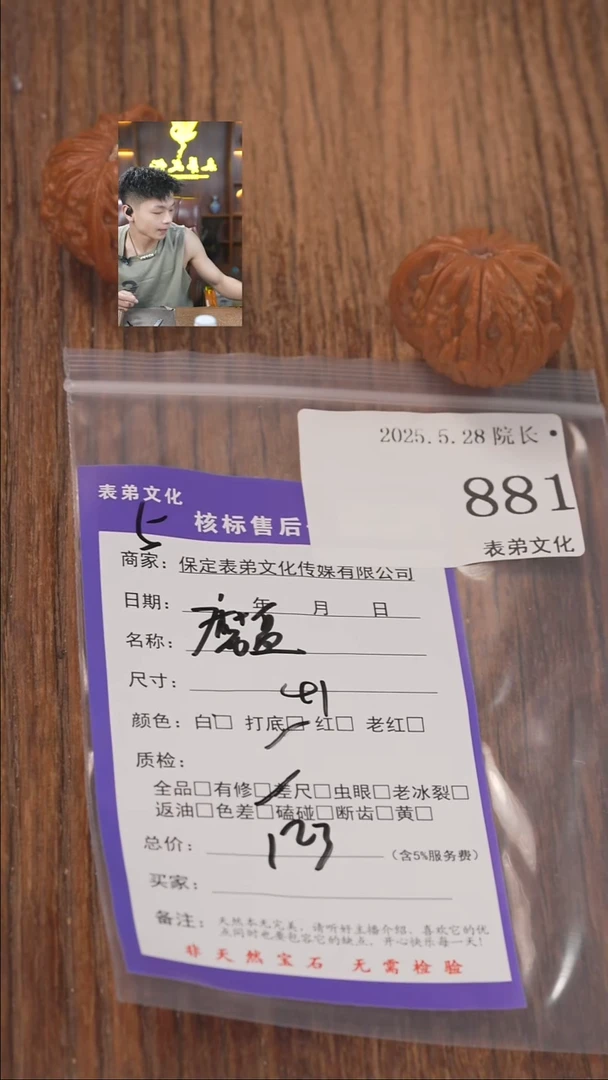 2025.5.28 院长 •
881
表弟文化
表弟文化
5
核标售后
商家：保定表弟文化传媒有限公司
日期： 年 月 日
名称： 磨盘
尺寸： 41
颜色：白□ 打底□ 红□ 老红□
质检：
全品□有修□差尺□虫眼□老冰裂□
返油□色差□磕碰□断齿□黄□
总价： 123 （含5%服务费）
买家：
备注：天然本无完美，请听好主播介绍，喜欢它的优
点同时也要包容它的缺点，开心快乐每一天！
非天然宝石 无需检验